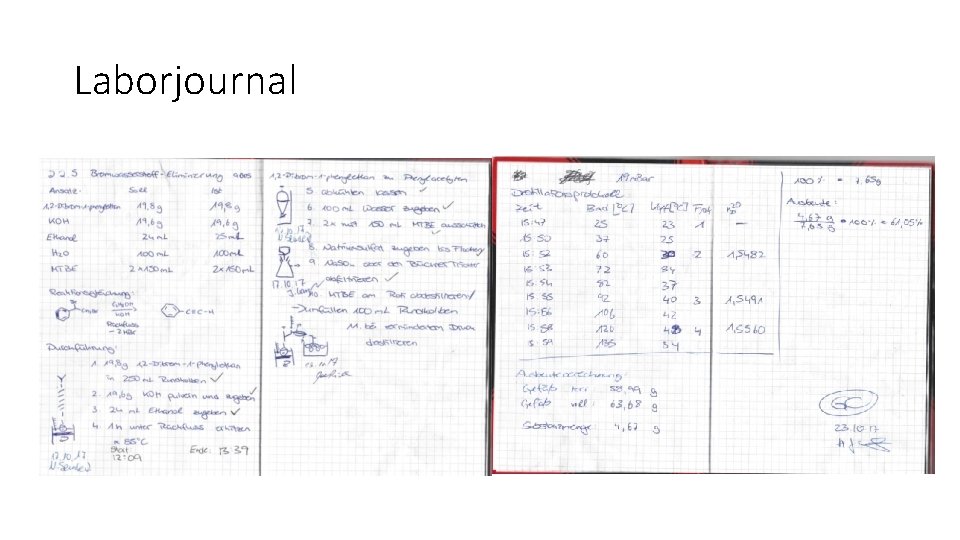 Laborjournal
2.2.5 Bromwasserstoff-Eliminierung aus
Ansatz: Soll Ist
1,2-Dibrom-1-phenylethan 19,8g 19,8g
KOH 19,6g 19,6g
Ethanol 24mL 25mL
H₂O 100mL 100mL
MTBE 2x150mL 2x150mL
Reaktionsgleichung:
KOH
Rückfluss
-2 HBr
-C≡C-H
Durchführung:
1. 19,8g 1,2-Dibrom-1-phenylethan
in 250mL Rundkolben ✓
2. 19,6g KOH pulvern und zugeben ✓
3. 24mL Ethanol zugeben ✓
4. 1h unter Rückfluss erhitzen
≈ 85°C
Start Ende: 13 39
12:09
17.10.17
1,2-Dibrom-1-phenylethan zu Phenylacetylen
5. abkühlen lassen ✓
6. 100mL Wasser zugeben ✓
7. 2x mit 150mL MTBE ausschütteln
17.10.17
8. Natriumsulfat zugeben bis
9. über den Büchner Trichter
abfiltrieren ✓
17.10.17
10 MTBE am Roti abdestillieren ✓
→ Umfüllen 100mL Rundkolben
11. bei vermindertem Druck
destillieren
19mBar
Destillationsprotokoll
Zeit Bad [°C] Kopf[°C] Frakt
15:47 25 23 1 —
15:50 37 25
15:52 60 30 2 1,5482
15:53 72 34
15:54 82 37
15:55 92 40 3 1,5491
15:56 106 42
15:58 120 48 4 1,5560
15:59 135 54
Ausbeuteberechnung:
Gefäß leer: 58,99 g
Gefäß voll: 63,68 g
Substanzmenge: 4,67 g
100% = 7,65g
Ausbeute:
4,67 g
7,65 g
• 100% = 61,05%
GC
23.10.17